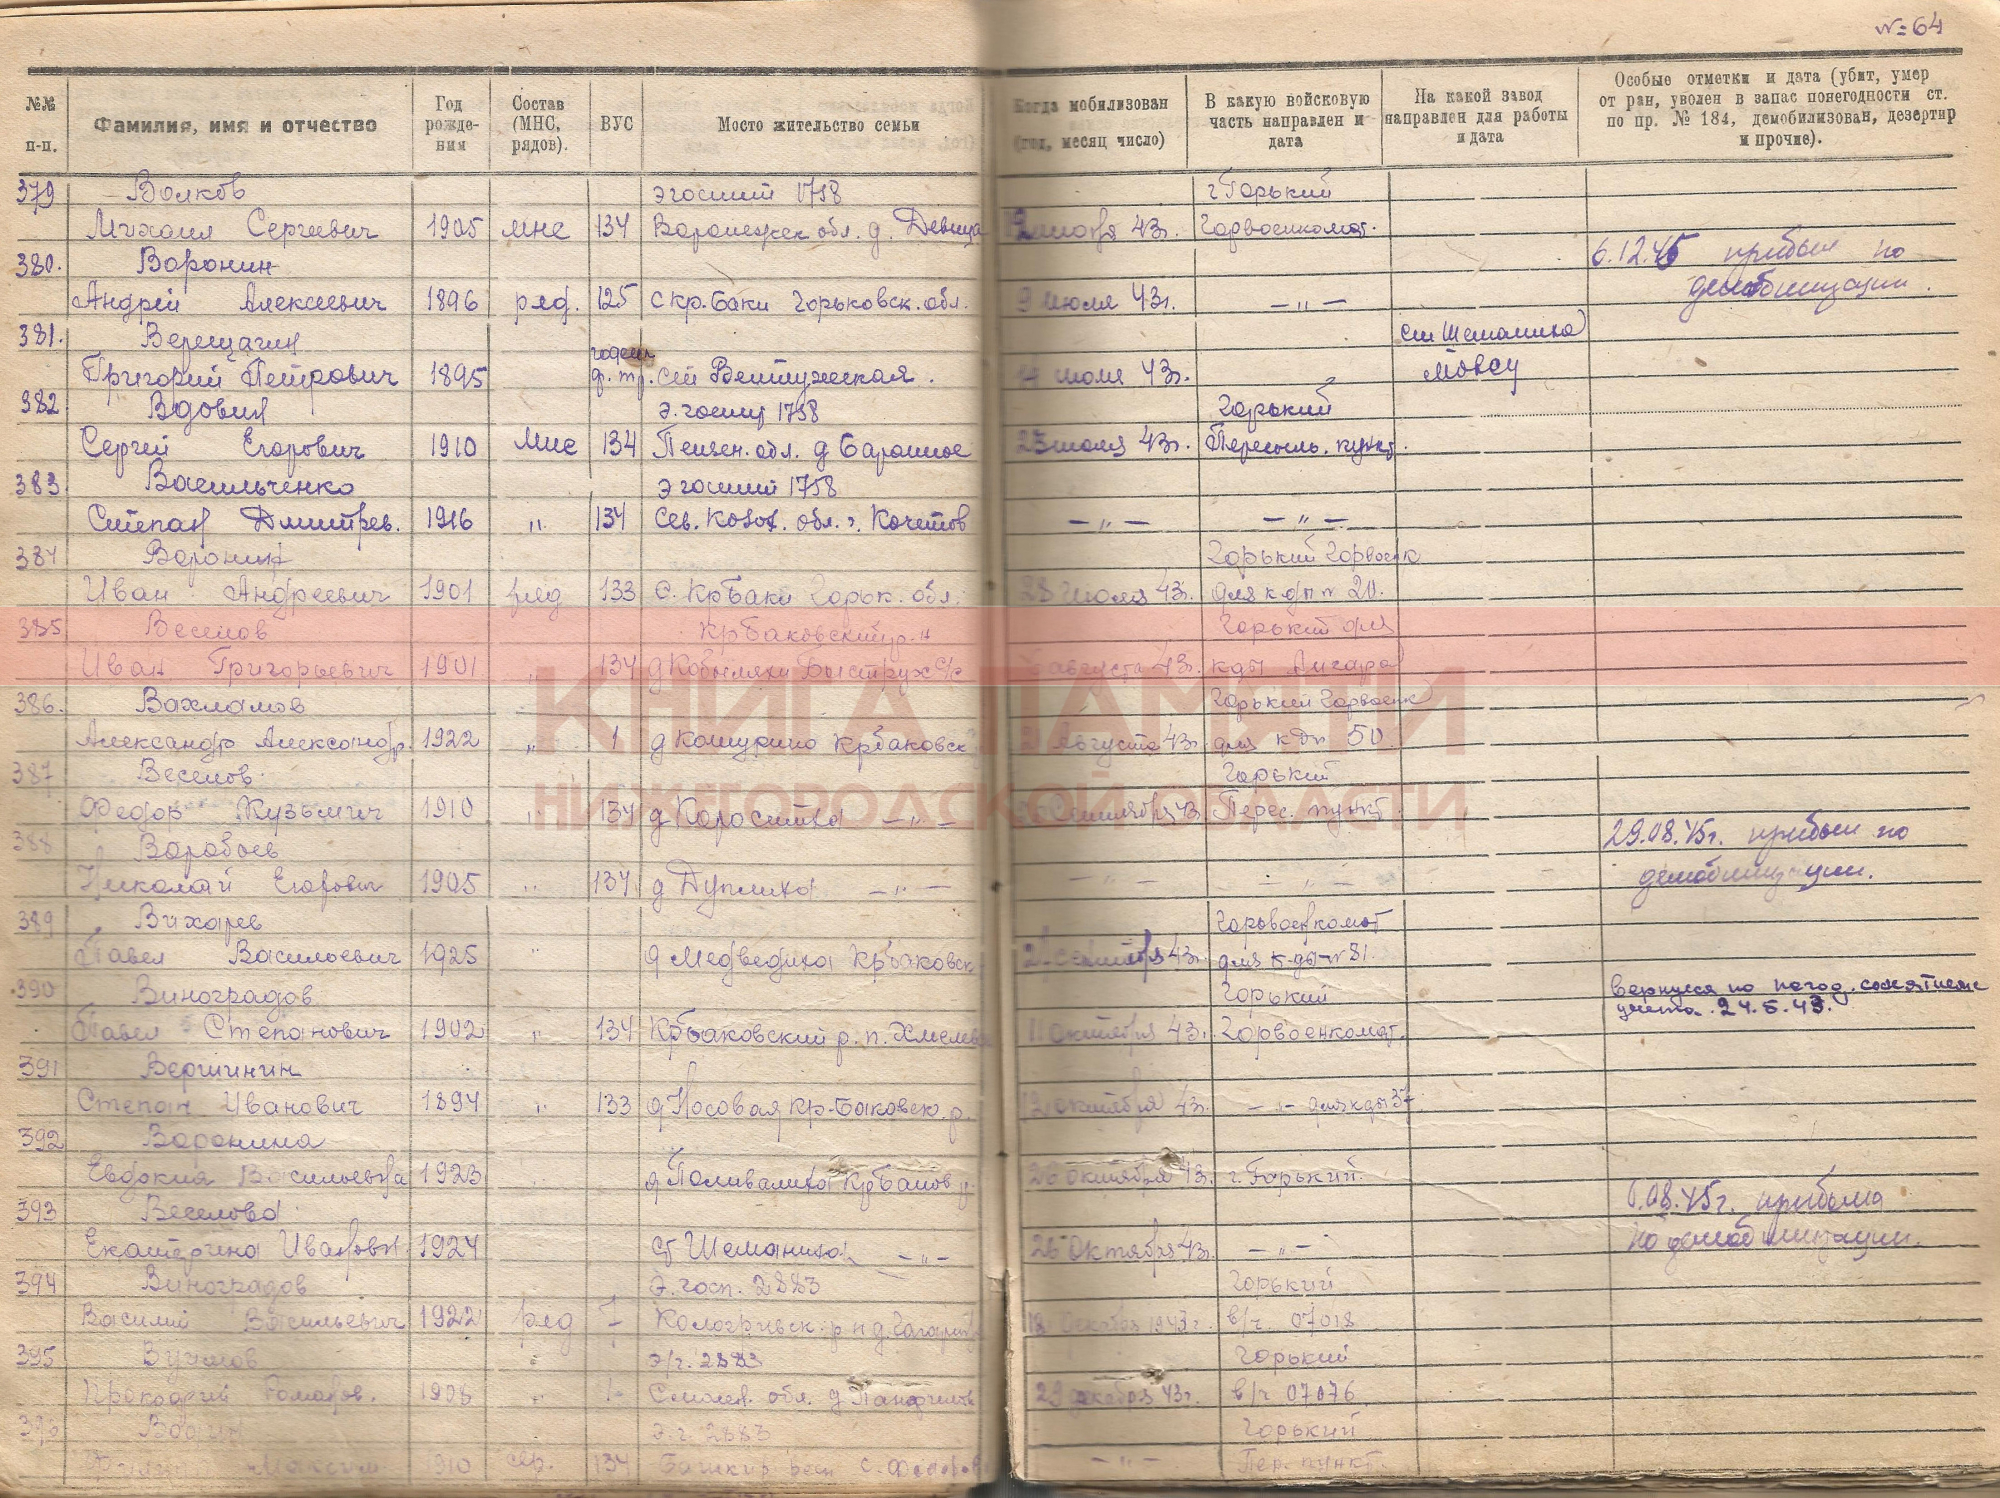 № 64
№№ п-п. Фамилия, имя и отчество Год рожде-ния Состав (МНС, рядов). ВУС Мосто жительство семьи Когда мобилизован (год, месяц число) В какую войсковую часть направлен и дата На какой завод направлен для работы и дата Особые отметки и дата (убит, умер от ран, уволен в запас понегодности ст. по пр. № 184, демобилизован, дезертир и прочие).
379 Волков эгоспит 1758 г Горький
Михаил Сергеевич 1905 мнс 134 Воронежск обл. д. Девица июля 43г. Горвоенкомат.
380. Воронин 6.12.45 прибыл по
Андрей Алексеевич 1896 ряд. 125 с Кр. Баки Горьковск. обл. 9 июля 43г. —„— демобилизации.
381. Верещагин годен ст Шеманиха
Григорий Петрович 1895 ф. тр. ст Ветлужская. июля 43г.
382 Вдовин э. госпит 1758 Горький
Сергей Егорович 1910 Мнс 134 Пензен. обл. д 23 июля 43г. Пересыль. пункт.
383 Васильченко э госпит 1758
Степан Дмитрев. 1916 „ 134 —„— —„—
384 Воронин Горький Горвоенк
Иван Андреевич 1901 ряд 133 с. Кр Баки Горьк. обл. 28 июля 43г. для к-ды № 20.
385 Веселов Кр Баковский р-н Горький для
Иван Григорьевич 1901 „ 134 д Кобыляки Быструх С/с августа 43г. кды Ангара
386. Вахламов Горький Горвоенк
Александр Александр. 1922 „ 1 д Кошуркино Кр Баковск Августа 43г. для кды 50.
387 Веселов Горький
Федор Кузьмич 1910 „ 134 д Коростиха —„— Сентября 43 Перес. пункт.
388 Воробьев 29.08.45г. прибыл по
Николай Егорович 1905 „ 134 д Дуплиха —„— —„— —„— демобилизации.
389 Вихарев Горвоенкомат
Павел Васильевич 1925 „ д Медведиха Кр Баковск сентября 43г. для к-ды № 81.
390 Виноградов Горький Вернулся по негод.
Павел Степанович 1902 „ 134 Кр Баковский р. п. 11 Октября 43г. Горвоенкомат. учета. 24.5.43.
391 Вершинин
Степан Иванович 1894 „ 133 д Носовая Кр-Баковск р. октября 43г. —„— для кды 37
392 Воронина
Евдокия Васильевна 1923 д Поливалиха 26 октября 43г. г. Горький.
393 Веселова .08.45г. прибыла
Екатерина Ивановн. 1924 ст Шеманиха —„— 26 Октября 43г. —„— по демобилизации.
394 Виноградов Э. госп. 2883 Горький
Василий Васильевич 1922 ряд 1 Кологривск. р н д. 18 Декабря 1943г. в/ч. 07018
395 э/г. 2883 Горький
Прокофий Романов. 1908 „ 1 Смолен. обл. д Панфилов 29 декабря 43г. в/ч 07076
Э. г. 2883 Горький
Максим 1910 сер. 134 Башкир респ с. —„— Пер. пункт.
КНИГА ПАМЯТИ
НИЖЕГОРОДСКОЙ ОБЛАСТИ